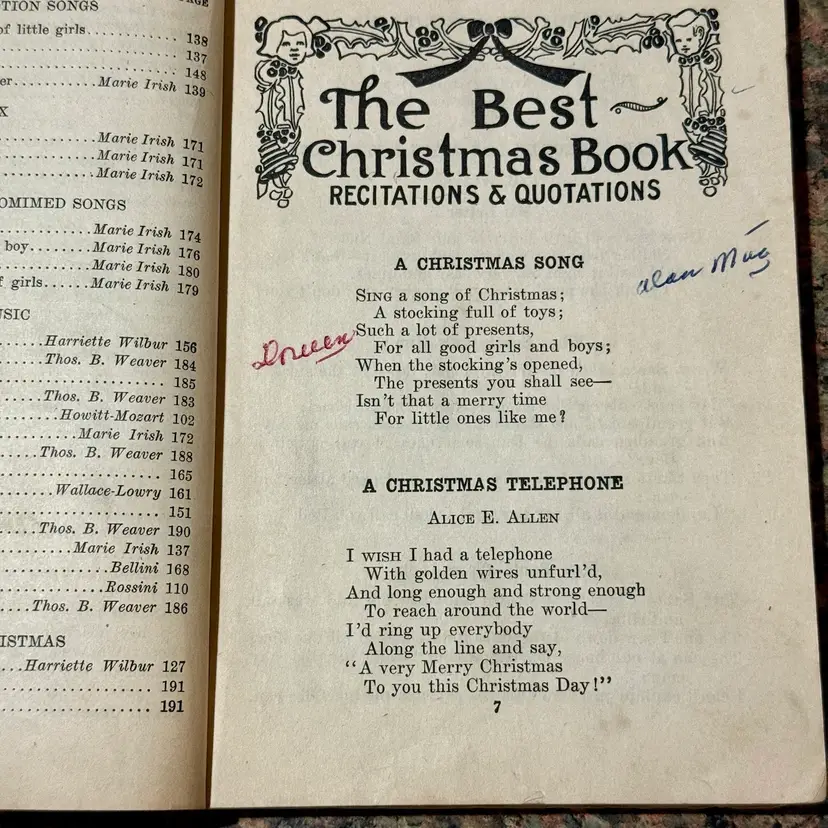 TION SONGS
PAGE
of little girls............ 138
137
148
er.............Marie Irish 139
X
Marie Irish 171
Marie Irish 171
Marie Irish 172
OMIMED SONGS
Marie Irish 174
boy........Marie Irish 176
Marie Irish 180
f girls......Marie Irish 179
USIC
Harriette Wilbur 156
Thos. B. Weaver 184
185
Thos. B. Weaver 183
Howitt-Mozart 102
Marie Irish 172
Thos. B. Weaver 188
165
Wallace-Lowry 161
151
Thos. B. Weaver 190
Marie Irish 137
Bellini 168
Rossini 110
Thos. B. Weaver 186
ISTMAS
Harriette Wilbur 127
191
191
The Best
Christmas Book
RECITATIONS & QUOTATIONS
A CHRISTMAS SONG
alan
SING a song of Christmas;
A stocking full of toys;
Doreen
Such a lot of presents,
For all good girls and boys;
When the stocking's opened,
The presents you shall see—
Isn't that a merry time
For little ones like me?
A CHRISTMAS TELEPHONE
ALICE E. ALLEN
I WISH I had a telephone
With golden wires unfurl'd,
And long enough and strong enough
To reach around the world—
I'd ring up everybody
Along the line and say,
"A very Merry Christmas
To you this Christmas Day!"
7